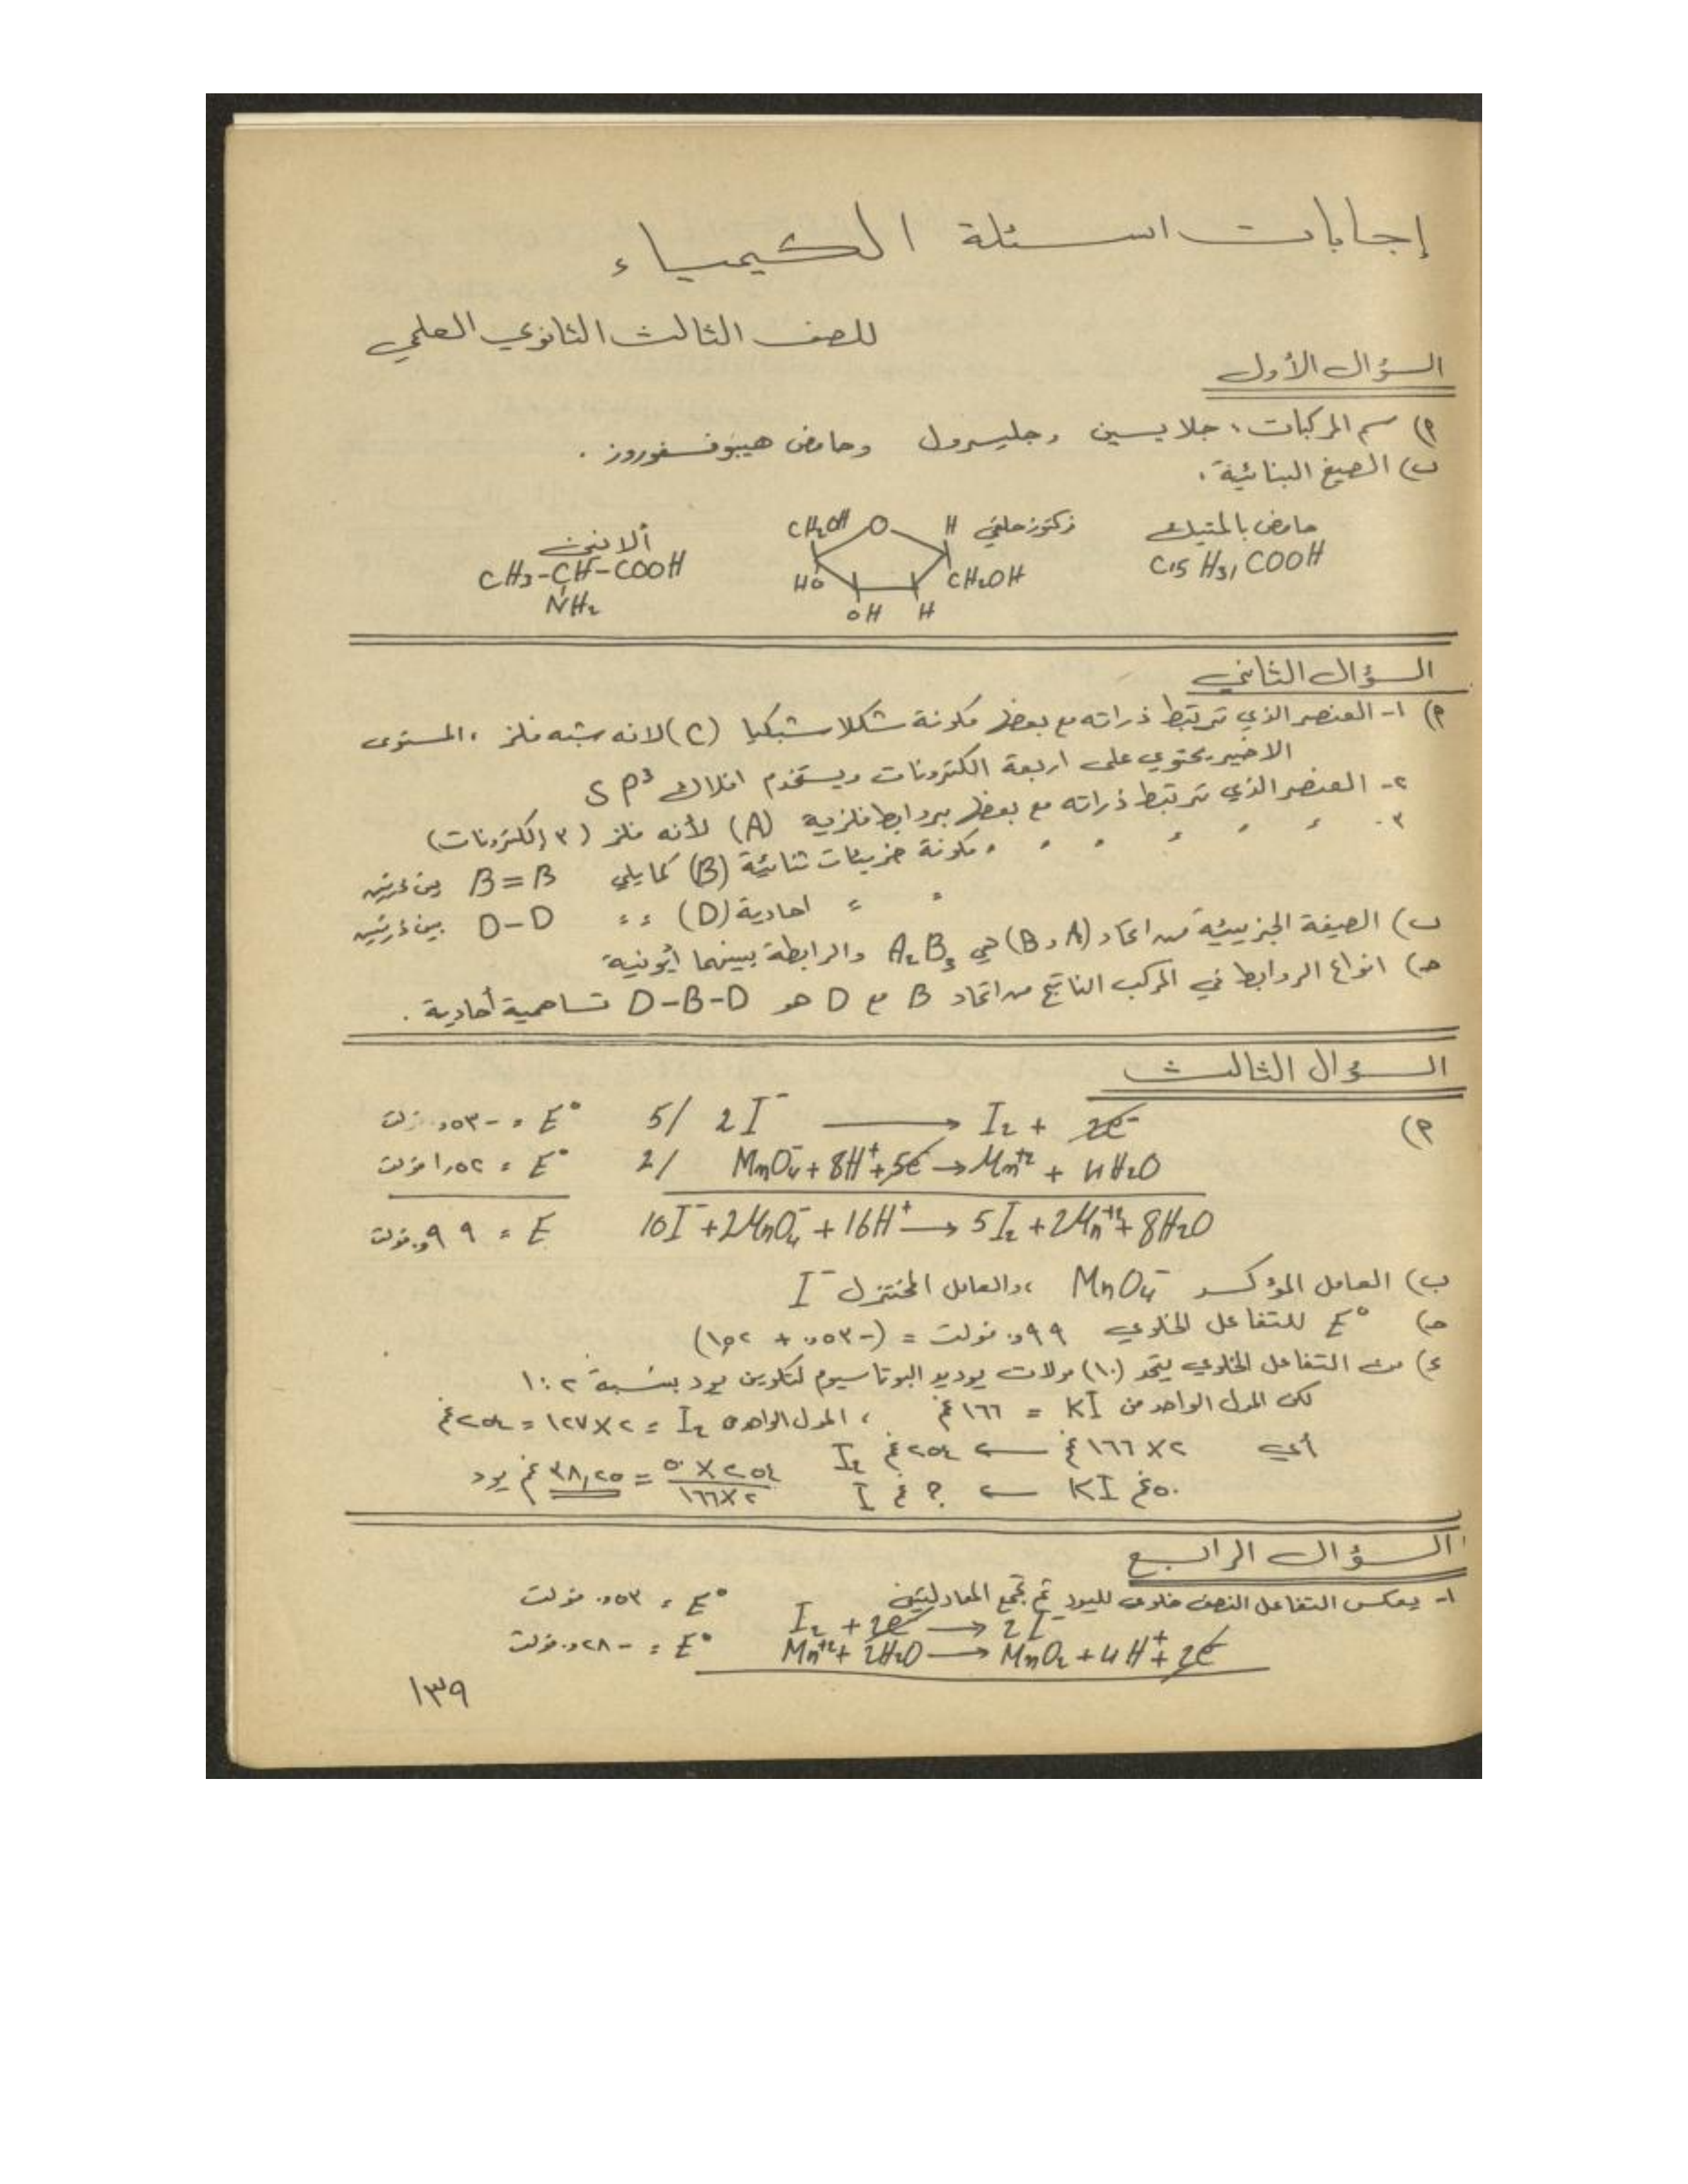 إجابات اسئلة الكيمياء
للصف الثالث الثانوي العلمي
السؤال الأول
أ) سم المركبات، جلايسين، جليسرول وحامض هيبوفسفوروز.
ب) الصيغ البنائية.
حامض بالمتيك
C15 H31 COOH
فركتوز حلقي
CH2OH O H
HO CH2OH
OH H
ألانين
CH3-CH-COOH
NH2
السؤال الثاني
أ) ١- العنصر الذي ترتبط ذراته مع بعض مكونة شكلا شبكيا (C) لانه شبه فلز، المستوى
الاخير يحتوي على اربعة الكترونات ويستخدم افلاك SP3
٢- العنصر الذي ترتبط ذراته مع بعض بروابط فلزية (A) لأنه فلز (٣ إلكترونات)
٣- 〃 〃 〃 〃 〃 〃 مكونة جزيئات ثنائية (B) كما يلي B=B بين ذرتين
〃 〃 احادية (D) 〃 D-D بين ذرتين
ب) الصيغة الجزيئية من اتحاد (A و B) هي A2B3 والرابطة بينهما أيونية
جـ) انواع الروابط في المركب الناتج من اتحاد B مع D هو D-B-D تساهمية أحادية.
السؤال الثالث
أ) 5/ 2I- → I2 + 2e- E° = -٠,٥٣ فولت
2/ MnO4- + 8H+ + 5e → Mn+2 + 4H2O E° = ١,٥٢ فولت
10I- + 2MnO4- + 16H+ → 5I2 + 2Mn+2 + 8H2O E = ٠,٩٩ فولت
ب) العامل المؤكسد MnO4- ،والعامل المختزل I-
جـ) E° للتفاعل الخلوي ٠,٩٩ فولت = (-٠,٥٣ + ١,٥٢)
د) من التفاعل الخلوي يتحد (١٠) مولات يوديد البوتاسيوم لتكوين يود بنسبة ٢:١
لكن المول الواحد من KI = ١٦٦ غم ، المول الواحد I2 = ٢×١٢٧ = ٢٥٤ غم
أي ٢×١٦٦ غم ← ٢٥٤ غم I2
٥٠ غم KI ← ؟ غم I ٢٥٤×٥٠ / ٢×١٦٦ = ٣٨,٢٥ غم يود
السؤال الرابع
١- يعكس التفاعل النصف خلوي لليود ثم تجمع المعادلتين
I2 + 2e → 2I- E° = ٠,٥٣ فولت
Mn+2 + 2H2O → MnO2 + 4H+ + 2e E° = -٠,٢٨ فولت
١٣٩